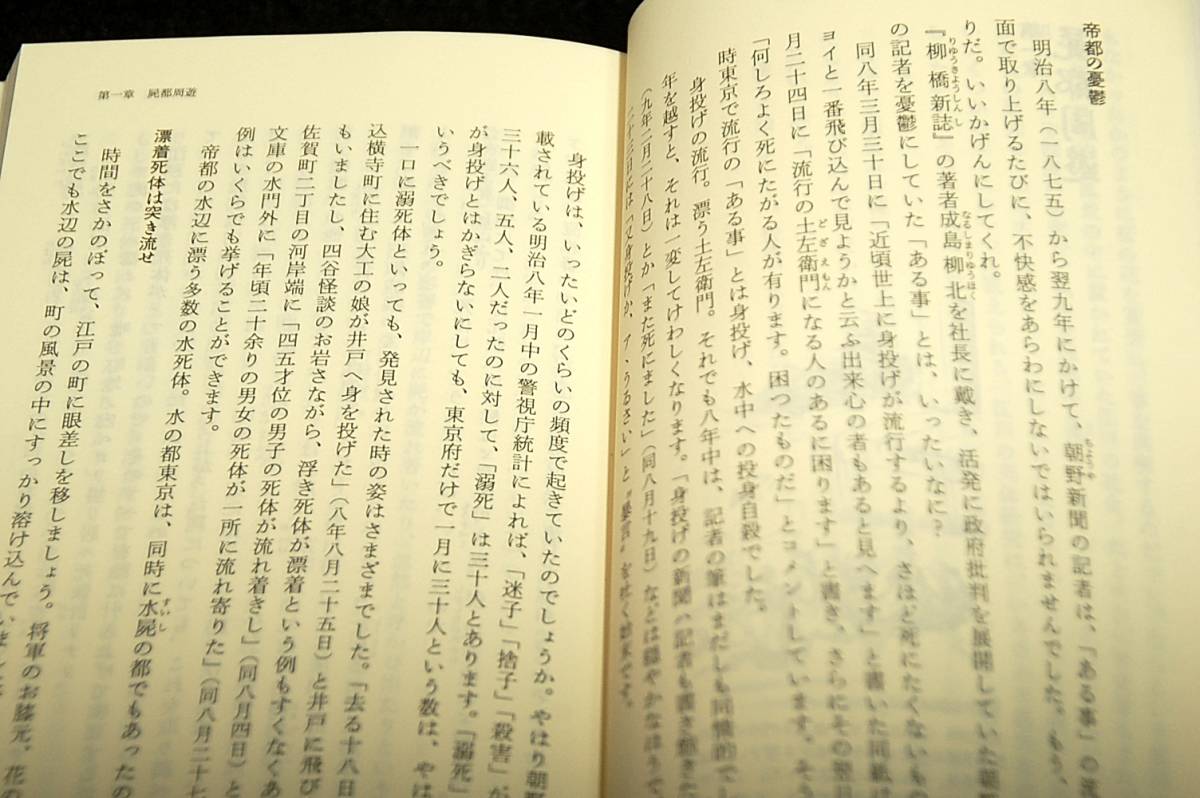 帝都の憂鬱
明治八年(一八七五)から翌九年にかけて、朝野新聞の記者は、「ある事」の流
面で取り上げるたびに、不快感をあらわにしないではいられませんでした。もう、
りだ。いいかげんにしてくれ。
『柳橋新誌』の著者成島柳北を社長に戴き、活発に政府批判を展開していた朝
の記者を憂鬱にしていた「ある事」とは、いったいなに?
同八年三月三十日に「近頃世上に身投げが流行するより、さほど死にたくないもの
ヨイと一番飛び込んで見ようかと云ふ出来心の者もあると見へます」と書いた同紙は
月二十四日に「流行の土左衛門になる人のあるに困ります」と書き、さらにその翌日
「何しろよく死にたがる人が有ります。困ったものだ」とコメントしています。そう
時東京で流行の「ある事」とは身投げ、水中への投身自殺でした。
身投げの流行。漂う土左衛門。それでも八年中は、記者の筆はまだしも同情的でし
年を越すと、それは一変してけわしくなります。「身投げの新聞ハ記者も書き飽きた
(九年二月二十八日)とか「また死にました」(同八月十九日)などは穏やかなほうで
第一章 屍都周遊
身投げは、いったいどのくらいの頻度で起きていたのでしょうか。やはり朝野
載されている明治八年一月中の警視庁統計によれば、「迷子」「捨子」「殺害」が
三十六人、五人、二人だったのに対して、「溺死」は三十人とあります。「溺死」
が身投げとはかぎらないにしても、東京府だけで一月に三十人という数は、やは
いうべきでしょう。
一口に溺死体といっても、発見された時の姿はさまざまでした。「去る十八日
込横寺町に住む大工の娘が井戸へ身を投げた」(八年八月二十五日)と井戸に飛び
もいましたし、四谷怪談のお岩さながら、浮き死体が漂着という例もすくなくあ
佐賀町二丁目の河岸端に「四五才位の男子の死体が流れ着きし」(同八月四日)と
文庫の水門外に「年頃二十余りの男女の死体が一所に流れ寄りた」(同八月二十七
例はいくらでも挙げることができます。
帝都の水辺に漂う多数の水死体。水の都東京は、同時に水屍の都でもあったの
漂着死体は突き流せ
時間をさかのぼって、江戸の町に眼差しを移しましょう。将軍のお膝元、花の
ここでも水辺の屍は、町の風景の中にすっかり溶け込んでいました